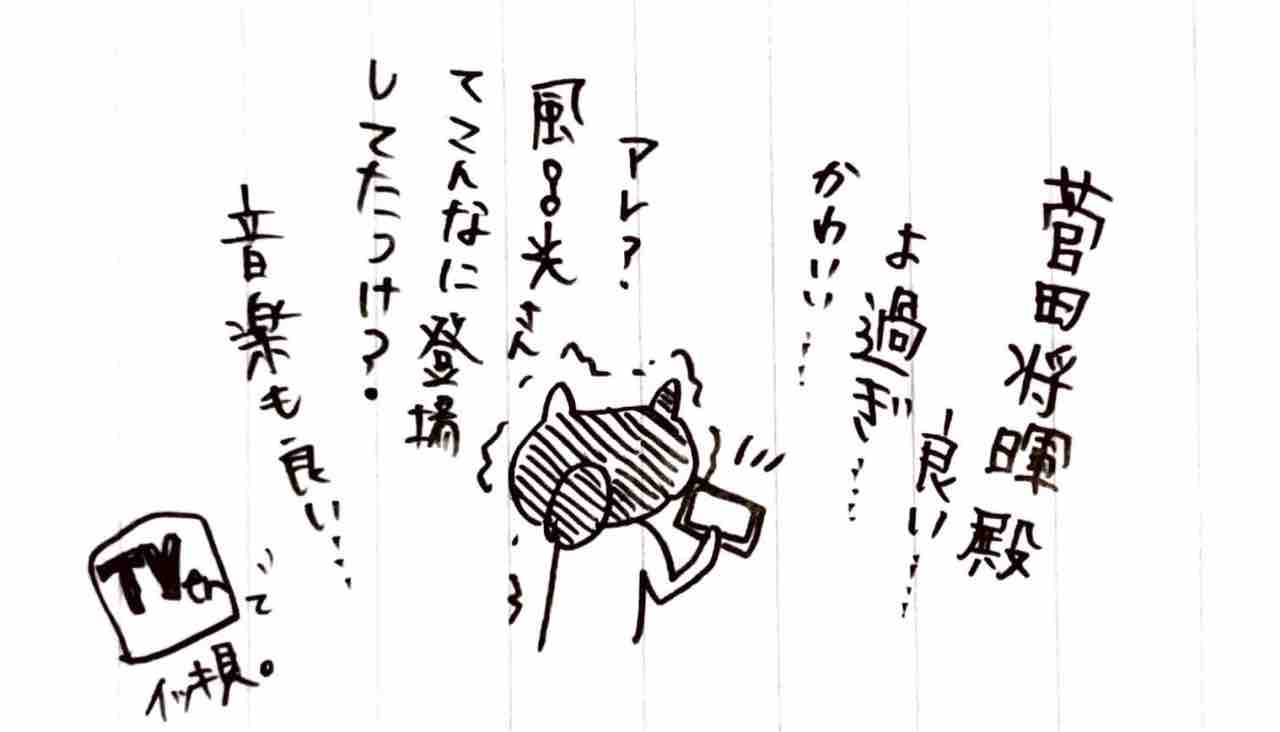 菅田将暉殿
良い……
よ過ぎ……
かわいい……
アレ?
風間俊介さん
てこんなに登場
してたっけ?
音楽も良い……
TVerで
イッキ見。